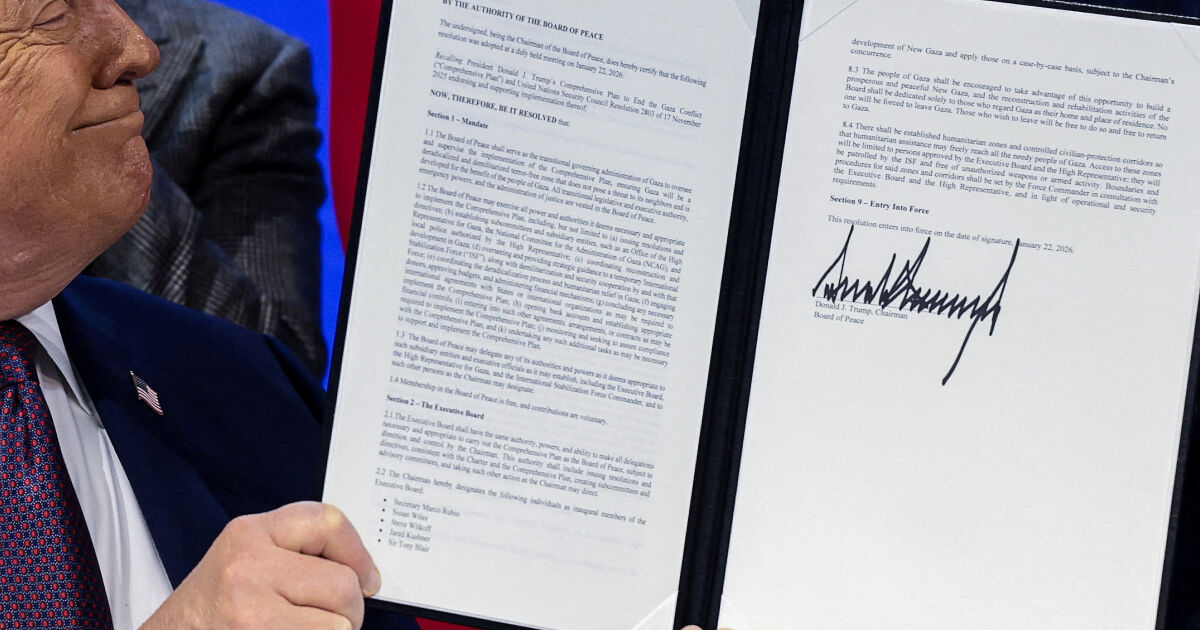 BY THE AUTHORITY OF THE BOARD OF PEACE
The undersigned, being the Chairman of the Board of Peace, does hereby certify that the following
resolution was adopted at a duly held meeting on January 22, 2026:
Recalling President Donald J. Trump's Comprehensive Plan to End the Gaza Conflict
("Comprehensive Plan") and United Nations Security Council Resolution 2803 of 17 November
2025 endorsing and supporting implementation thereof;
NOW, THEREFORE, BE IT RESOLVED that:
Section 1 – Mandate
1.1 The Board of Peace shall serve as the transitional governing administration of Gaza to oversee
and supervise the implementation of the Comprehensive Plan, ensuring Gaza will be a
deradicalized and demilitarized terror-free zone that does not pose a threat to its neighbors and is
developed for the benefit of the people of Gaza. All transitional legislative and executive authority,
emergency powers, and the administration of justice are vested in the Board of Peace.
1.2 The Board of Peace may exercise all power and authorities it deems necessary and appropriate
to implement the Comprehensive Plan, including, but not limited to (a) issuing resolutions and
directives; (b) establishing subcommittees and subsidiary entities, such as an Office of the High
Representative for Gaza, the National Committee for the Administration of Gaza (NCAG), and
local police authorized by the High Representative; (c) coordinating reconstruction and
development in Gaza; (d) overseeing and providing strategic guidance to a temporary International
Stabilization Force ("ISF"), along with demilitarization and security cooperation by and with that
Force; (e) coordinating the deradicalization process and humanitarian relief in Gaza; (f) engaging
donors, approving budgets, and administering financial mechanisms; (g) concluding any necessary
international agreements with States or international organizations as may be required to
implement the Comprehensive Plan; (h) opening bank accounts and establishing appropriate
financial controls; (i) entering into such other agreements, arrangements, or contracts as may be
required to implement the Comprehensive Plan; (j) monitoring and seeking to assure compliance
with the Comprehensive Plan; and (k) undertaking any such additional tasks as may be necessary
to support and implement the Comprehensive Plan.
1.3 The Board of Peace may delegate any of its authorities and powers as it deems appropriate to
such subsidiary entities and executive officials as it may establish, including the Executive Board,
the High Representative for Gaza, and the International Stabilization Force Commander, and to
such other persons as the Chairman may designate.
1.4 Membership in the Board of Peace is free, and contributions are voluntary.
Section 2 – The Executive Board
2.1 The Executive Board shall have the same authority, powers, and ability to make all delegations
necessary and appropriate to carry out the Comprehensive Plan as the Board of Peace, subject to
direction and control by the Chairman. This authority shall include issuing resolutions and
directives, consistent with the Charter and the Comprehensive Plan, creating subcommittees and
advisory committees, and taking such other action as the Chairman may direct.
2.2 The Chairman hereby designates the following individuals as inaugural members of the
Executive Board:
• Secretary Marco Rubio
• Susan Wiles
• Steve Witkoff
• Jared Kushner
• Sir Tony Blair
development of New Gaza and apply those on a case-by-case basis, subject to the Chairman's
concurrence.
8.3 The people of Gaza shall be encouraged to take advantage of this opportunity to build a
prosperous and peaceful New Gaza, and the reconstruction and rehabilitation activities of the
Board shall be dedicated solely to those who regard Gaza as their home and place of residence. No
one will be forced to leave Gaza. Those who wish to leave will be free to do so and free to return
to Gaza.
8.4 There shall be established humanitarian zones and controlled civilian-protection corridors so
that humanitarian assistance may freely reach all the needy people of Gaza. Access to these zones
will be limited to persons approved by the Executive Board and the High Representative; they will
be patrolled by the ISF and free of unauthorized weapons or armed activity. Boundaries and
procedures for said zones and corridors shall be set by the Force Commander in consultation with
the Executive Board and the High Representative, and in light of operational and security
requirements.
Section 9 – Entry Into Force
This resolution enters into force on the date of signature, January 22, 2026.
Donald J. Trump, Chairman
Board of Peace